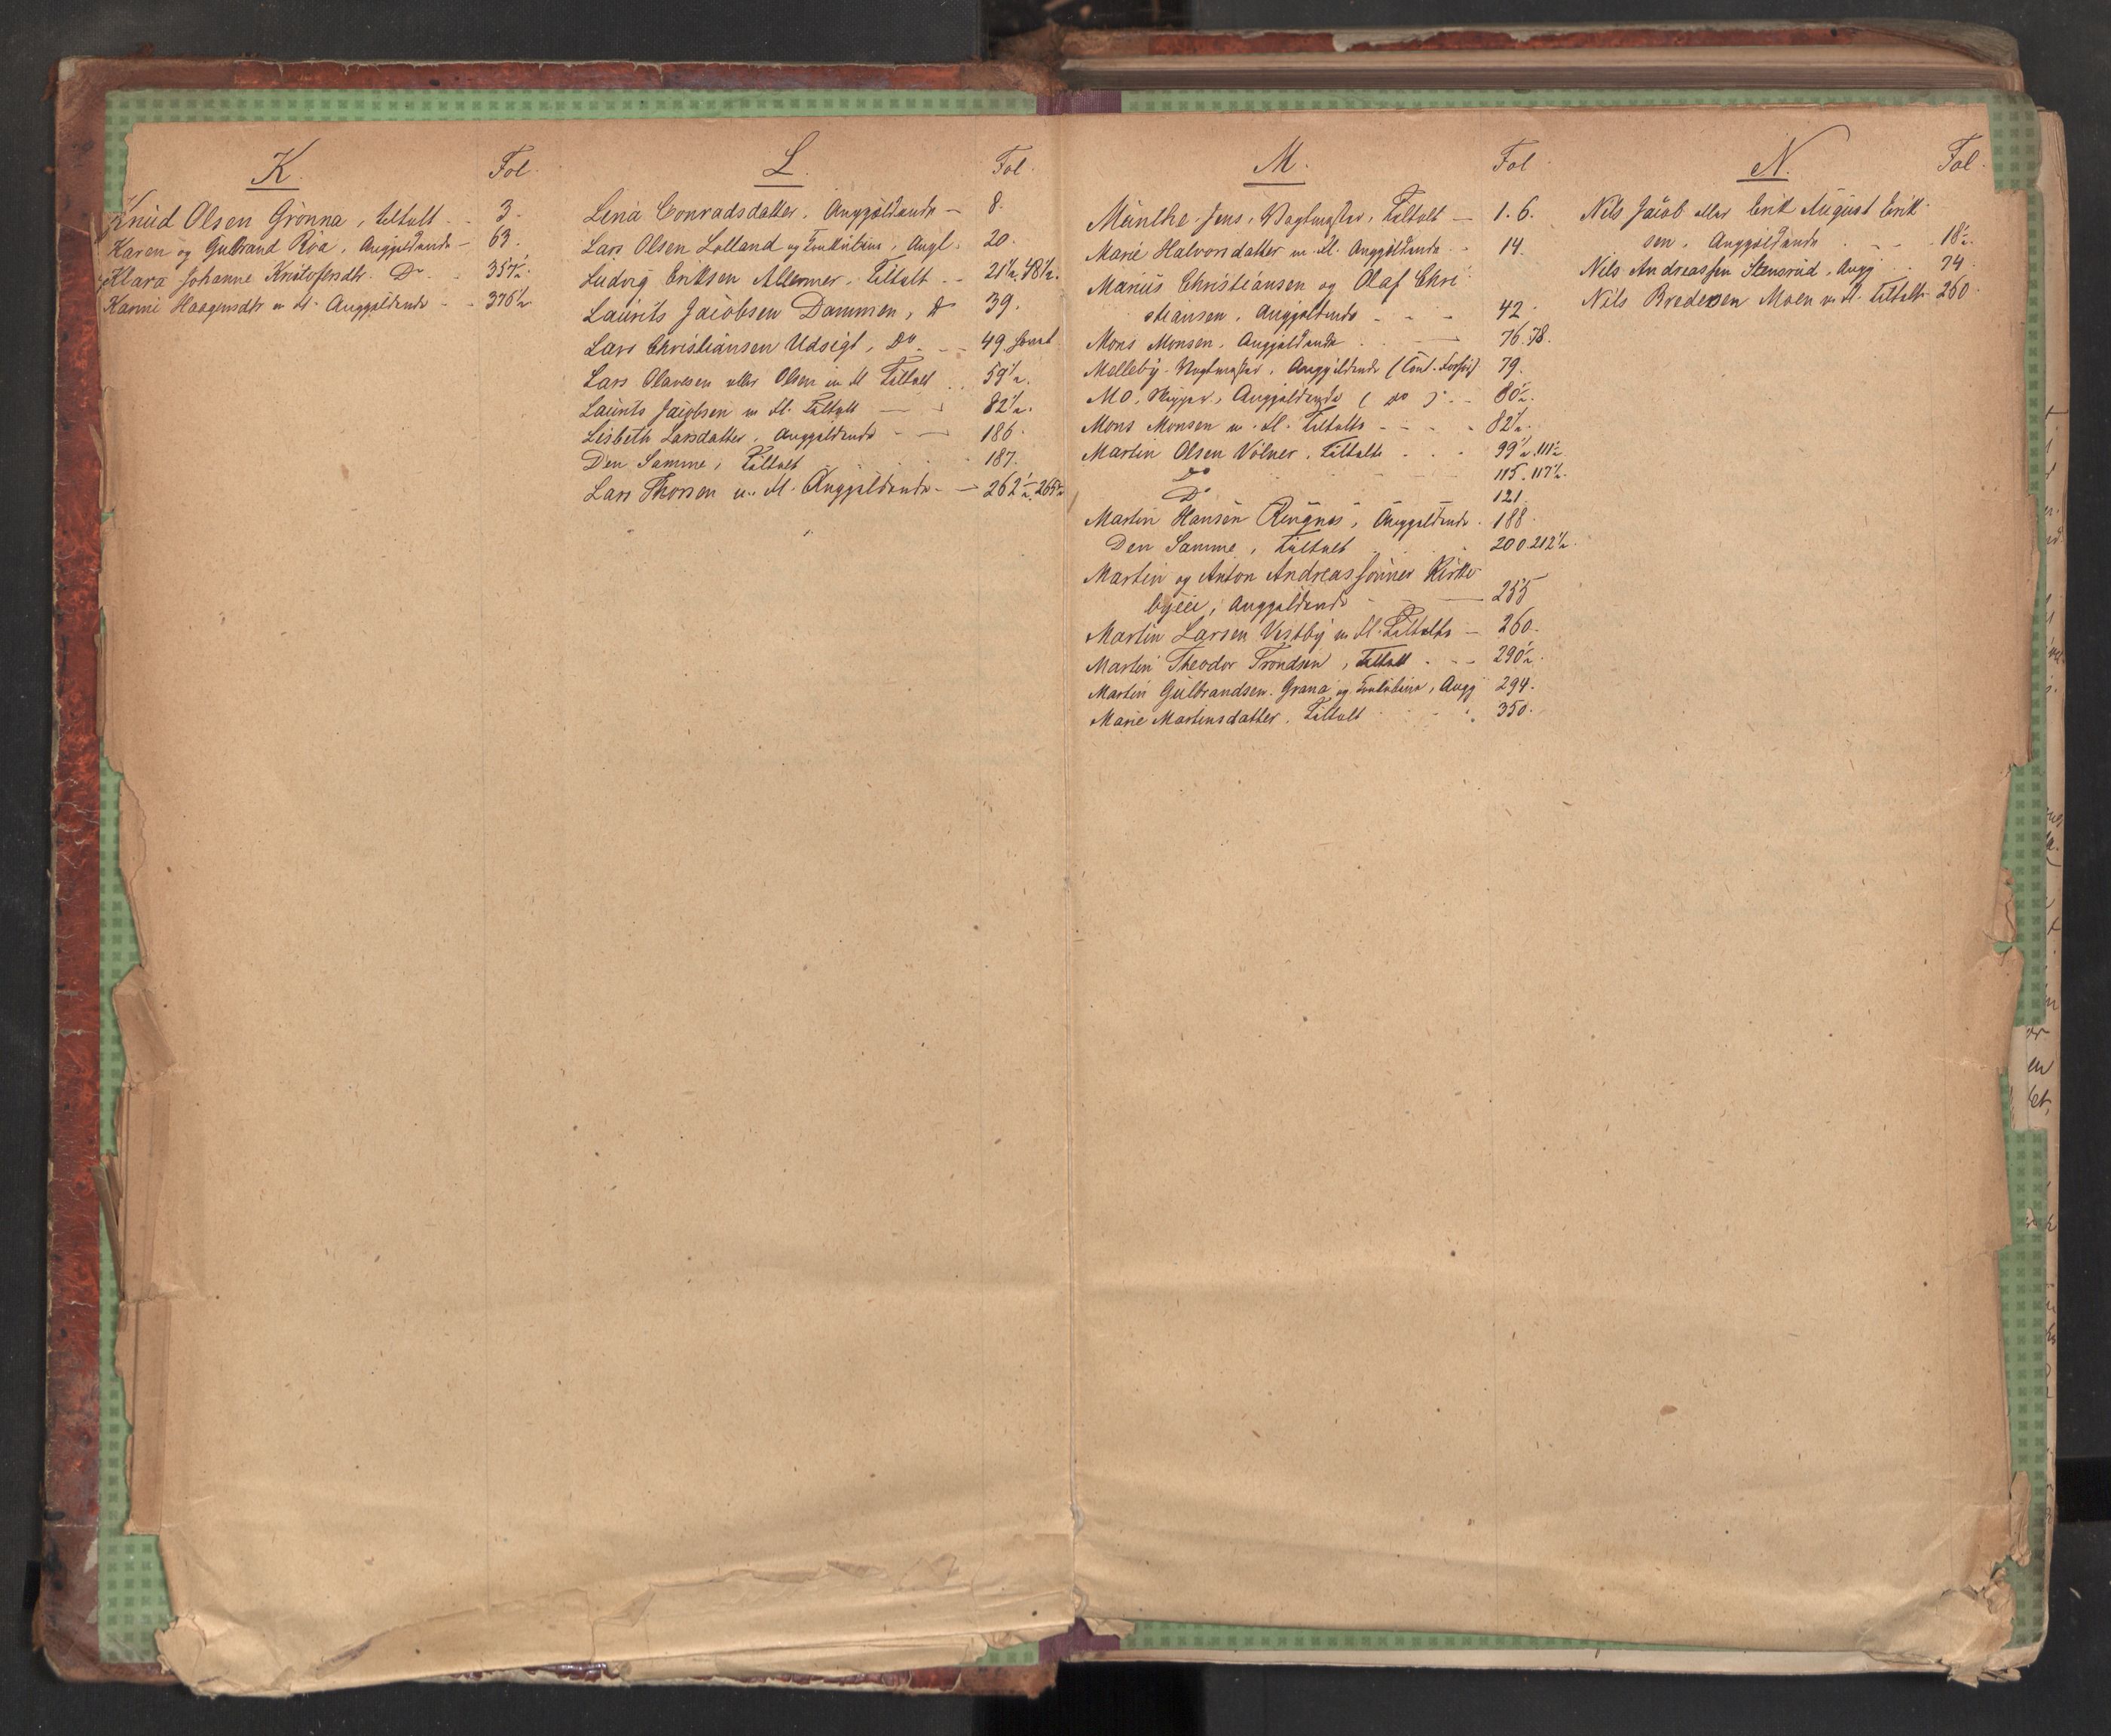 K. Fol.
Knud Olsen Grönna, tiltalt - - 3.
Karen og Gulbrand Röa, Angjældende - 63.
Klara Johanne Kristofersdtr. Do - 357½.
Karine Haagensdtr m. fl. Angjældende - - 376½
L. Fol.
Lina Conradsdatter, Angjældende - 8.
Lars Olsen Lolland og Konkubine, Angl. 20.
Ludvig Eriksen Allermer, Tiltalt - - 21½. 48½.
Laurits Jacobsen Dammen, Do 39.
Lars Christiansen Udsigt, Do - - 49
Lars Olavesen eller Olsen m fl Tiltalt . . 59½.
Laurits Jacobsen m. fl. Tiltalt - - 82½.
Lisbeth Larsdatter, Angjældende - - 186.
Den Samme, Tiltalt 187.
Lars Thorsen m. fl. Angjældende - - 262½. 265½
M. Fol.
Münthe, Jens, Vagtmester, Tiltalt - 1. 6.
Marie Halvorsdatter m. fl. Angjældende - - 14.
Marius Christiansen og Olaf Chri
stiansen, Angjældende - - - 42.
Mons Monsen, Angjældende . - 76. 78.
Melleby, Vagtmester, Angjældende (Const. Forhör) 79.
Mo, Angjældende ( do ) - - 80½.
Mons Monsen m. fl. Tiltalte - - - - 82½.
Martin Olsen Völner, Tiltalte . . - 99½. 111½
Do - - 115. 117½.
Do - - 121.
Martin Hansen Rengnes, Angjældende. 188.
Den Samme, Tiltalt . . 200. 212½.
Martin og Anton Andreassönner Kirke
byeie, Angjældende - - 255
Martin Larsen Vestby m. fl. Tiltalte - 260.
Martin Theodor Trondsen, Tiltalt . - - 290½.
Martin Gulbrandsen Grana og Konkubine, Angj 294.
Marie Martinsdatter, Tiltalt . - . 350.
N. Fol.
Nils Jacob eller Erik August Erik
sen, Angjældende . - - 18½.
Nils Andreassen Stensrud, Angj . . 74.
Nils Bredesen Moen m. fl. Tiltalte 260.